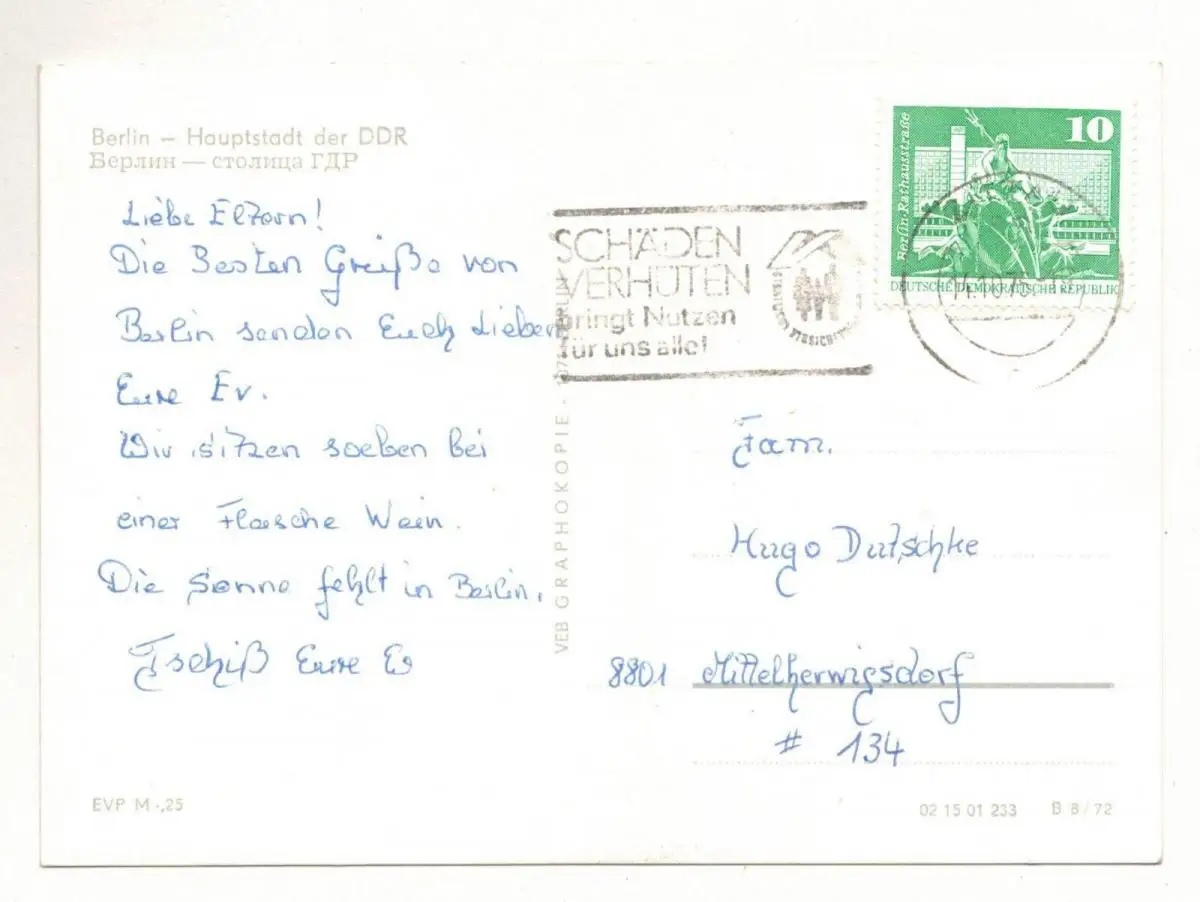 Berlin – Hauptstadt der DDR
Берлин — столица ГДР
Liebe Eltern!
Die Besten Grüße von
Berlin senden Euch Lieben
Eure Ev.
Wir sitzen soeben bei
einer Flasche Wein.
Die Sonne fehlt in Berlin.
Tschiß Eure Ev
EVP M -,25
VEB GRAPHOKOPIE
SCHÄDEN
VERHÜTEN
bringt Nutzen
für uns alle!
10
Berlin·Rathausstraße
DEUTSCHE DEMOKRATISCHE REPUBLIK
Fam.
Hugo Dutschke
8801 Mittelherwigsdorf
# 134
02 15 01 233 B 8/72